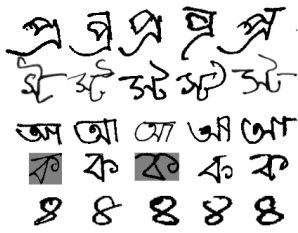 প্র প্র প্র প্র প্র
স্ট স্ট স্ট স্ট স্ট
আ আ আ আ আ
ক ক ক ক ক
৪ ৪ ৪ ৪ ৪